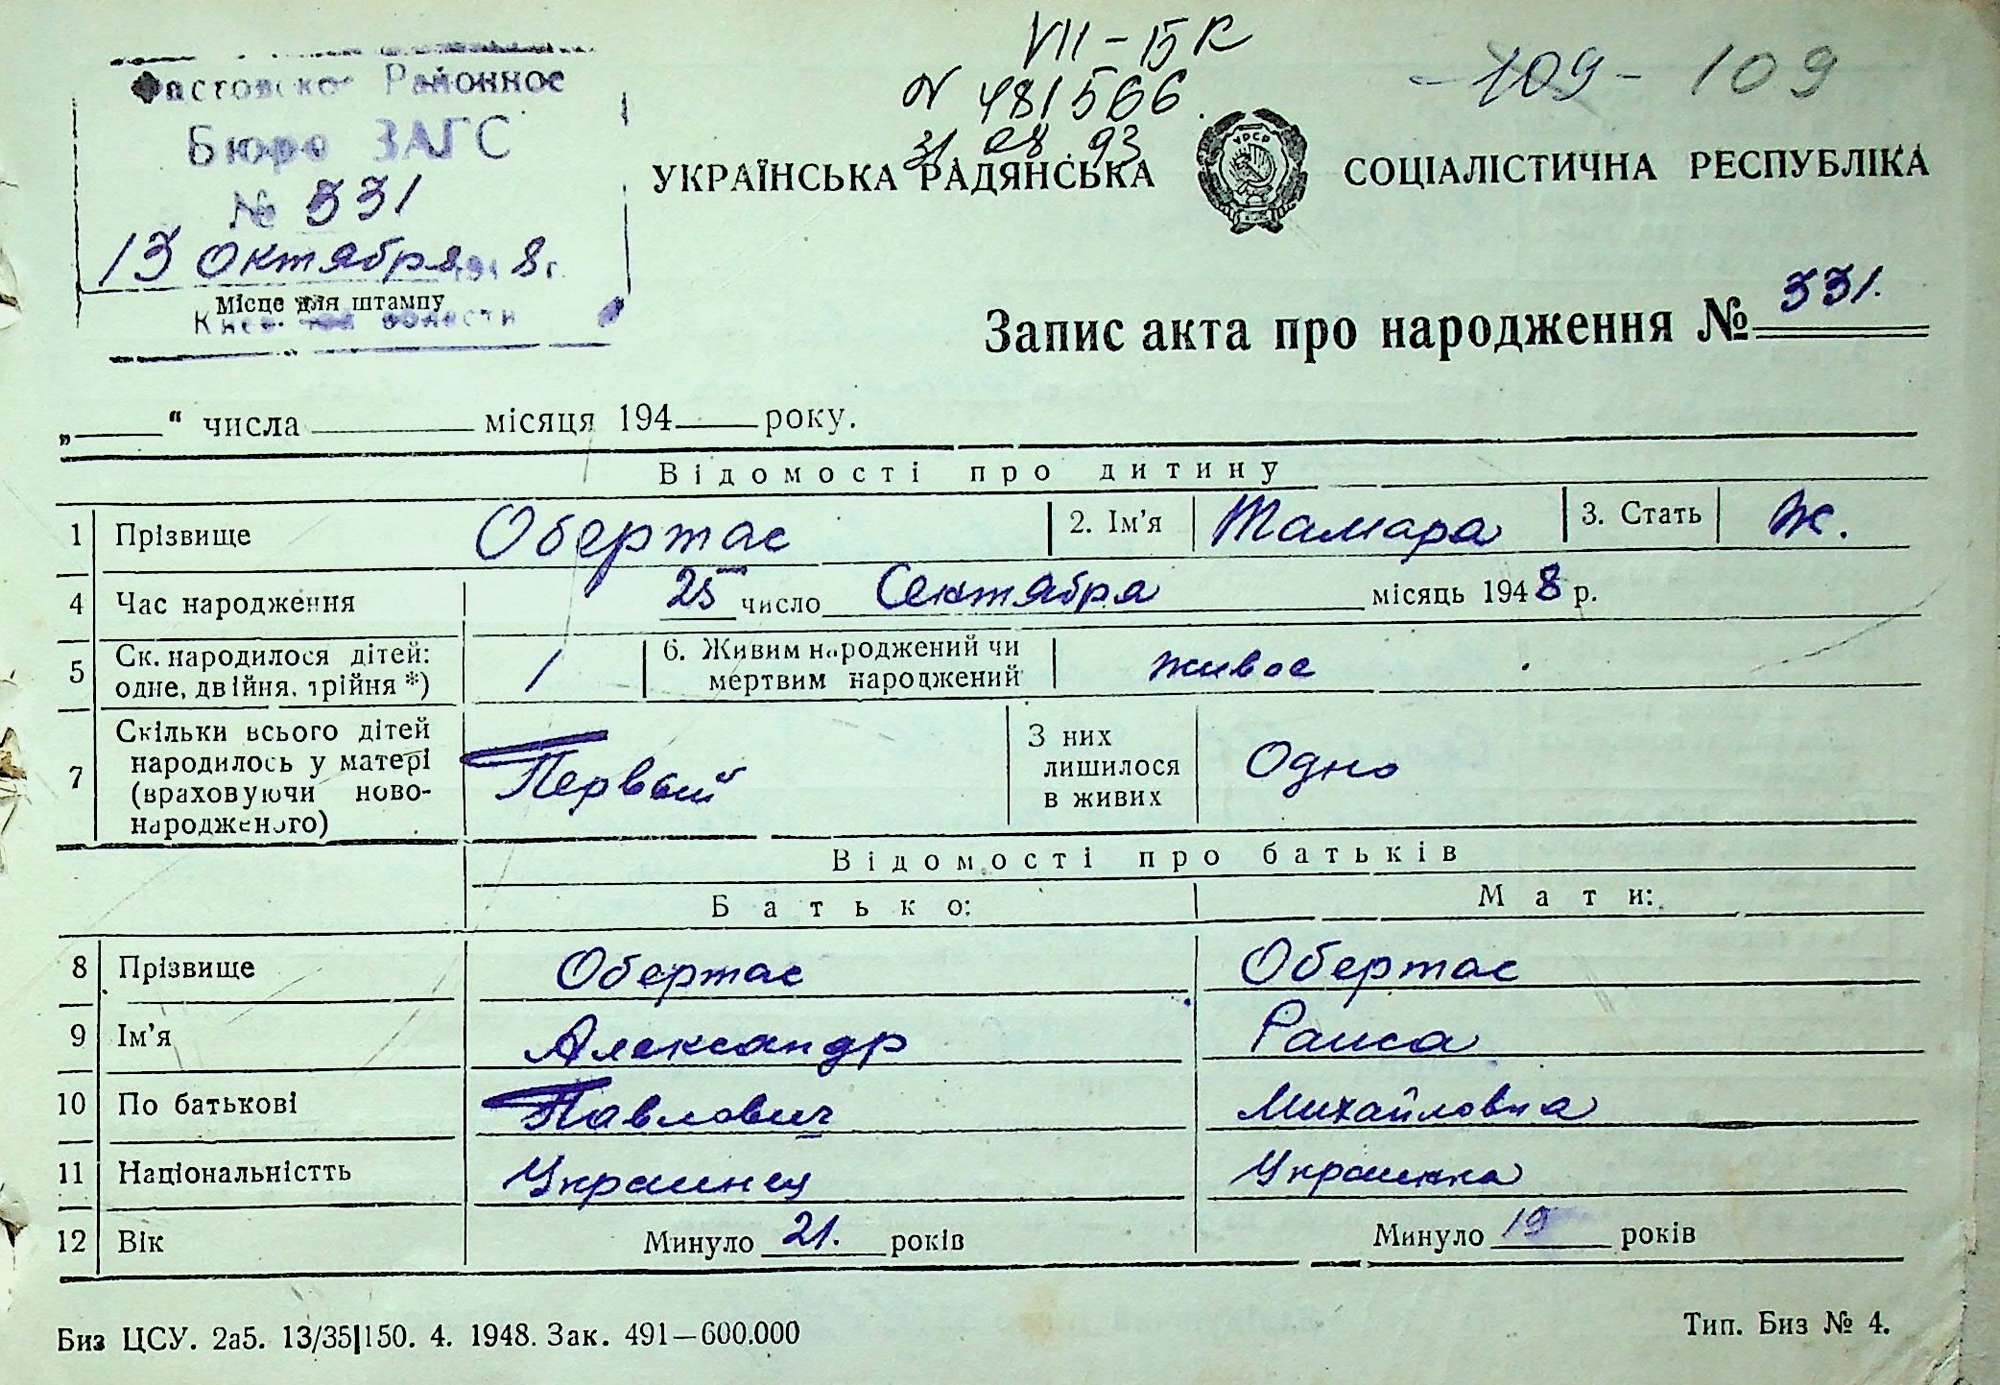 VII-БК
N 481566
31 08 93
-109- 109
Фастовское Районное
Бюро ЗАГС
№ 331
13 Октября 1948 г.
Місце для штампу
Киевской области
УКРАЇНСЬКА РАДЯНСЬКА СОЦІАЛІСТИЧНА РЕСПУБЛІКА
УРСР
Запис акта про народження № 331.
„____“ числа ____ місяця 194__ року.
Відомості про дитину
1 Прізвище Обертас 2. Ім'я Тамара 3. Стать Ж.
4 Час народження 25 число Сентября місяць 1948 р.
5 Ск. народилося дітей: одне, двійня, трійня *) 1 6. Живим народжений чи мертвим народжений живое
7 Скільки всього дітей народилось у матері (враховуючи ново-народженого) Первый З них лишилося в живих Одно
Відомості про батьків
Батько: Мати:
8 Прізвище Обертас Обертас
9 Ім'я Александр Раиса
10 По батькові Павлович Михайловна
11 Національністть Украинец Украинка
12 Вік Минуло 21. років Минуло 19 років
Биз ЦСУ. 2а5. 13/35|150. 4. 1948. Зак. 491—600.000 Тип. Биз № 4.